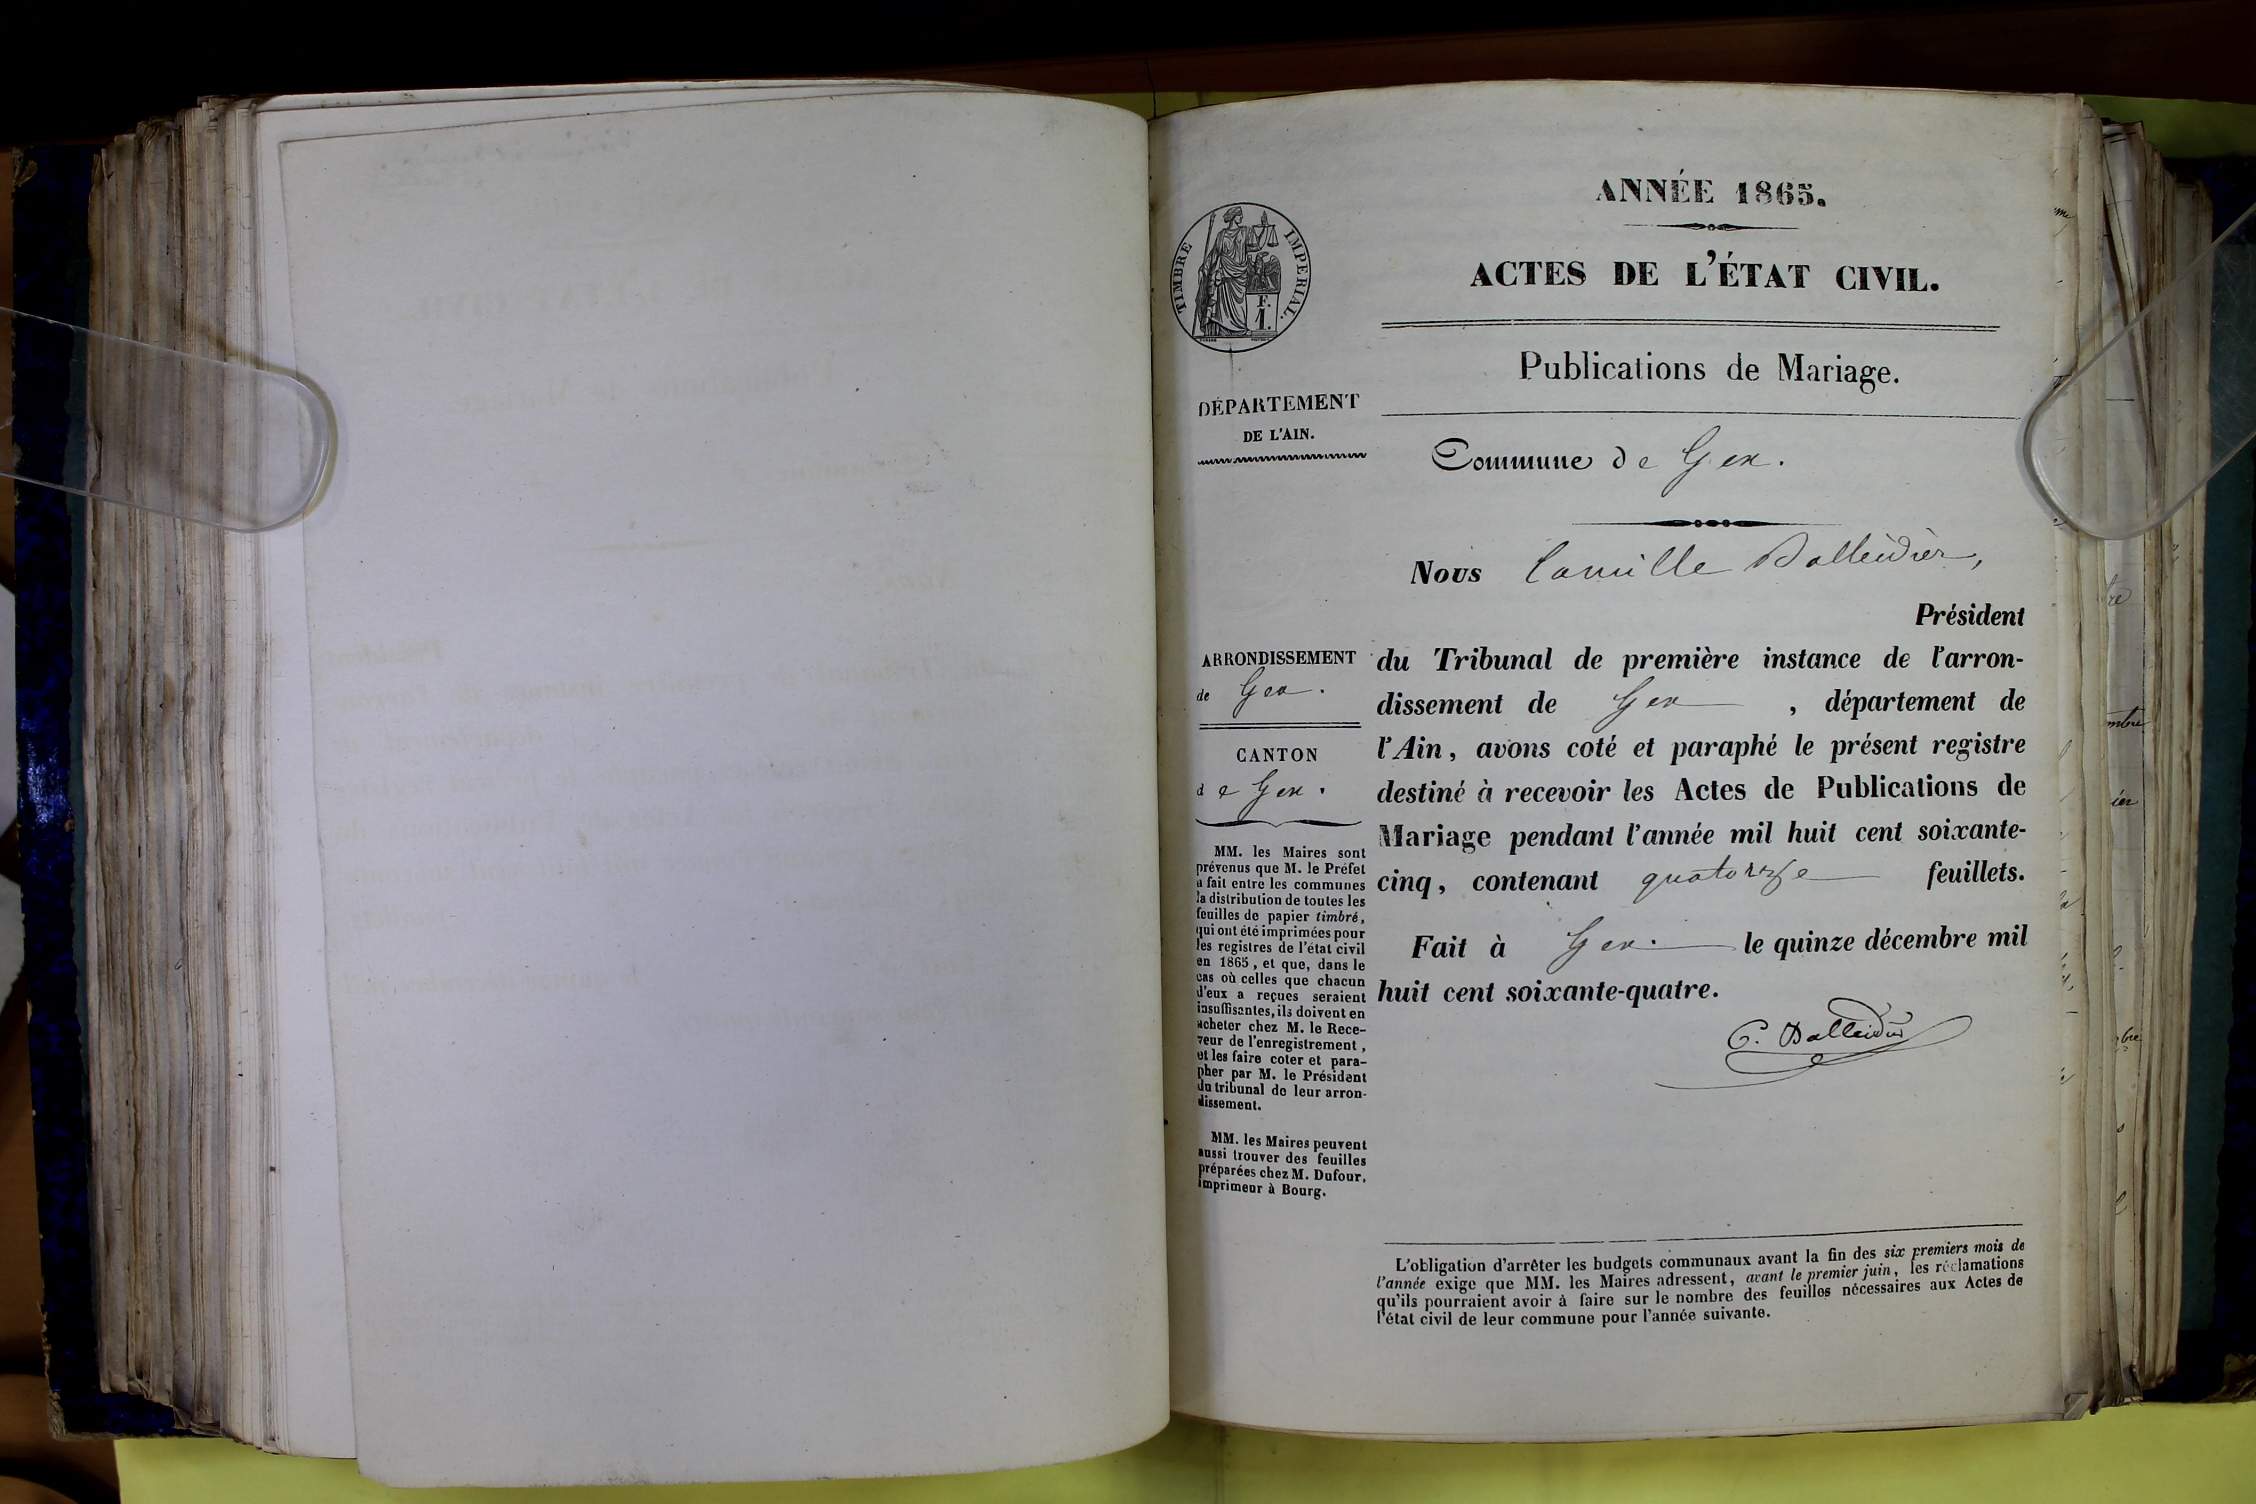 ANNÉE 1865.
ACTES DE L'ÉTAT CIVIL.
Publications de Mariage.
TIMBRE IMPERIAL.
F.
1.
DÉPARTEMENT
DE L'AIN.
Commune de Gex.
Nous Camille Balleidier,
Président
du Tribunal de première instance de l'arron-
dissement de Gex, département de
l'Ain, avons coté et paraphé le présent registre
destiné à recevoir les Actes de Publications de
Mariage pendant l'année mil huit cent soixante-
cinq, contenant quatorze feuillets.
Fait à Gex. le quinze décembre mil
huit cent soixante-quatre.
C. Balleidier
ARRONDISSEMENT
de Gex.
CANTON
de Gex.
MM. les Maires sont
prévenus que M. le Préfet
a fait entre les communes
la distribution de toutes les
feuilles de papier timbré,
qui ont été imprimées pour
les registres de l'état civil
en 1865, et que, dans le
cas où celles que chacun
d'eux a reçues seraient
insuffisantes, ils doivent en
acheter chez M. le Rece-
veur de l'enregistrement,
et les faire coter et para-
pher par M. le Président
du tribunal de leur arron-
dissement.
MM. les Maires peuvent
aussi trouver des feuilles
préparées chez M. Dufour,
imprimeur à Bourg.
L'obligation d'arrêter les budgets communaux avant la fin des six premiers mois de
l'année exige que MM. les Maires adressent, avant le premier juin, les réclamations
qu'ils pourraient avoir à faire sur le nombre des feuilles nécessaires aux Actes de
l'état civil de leur commune pour l'année suivante.